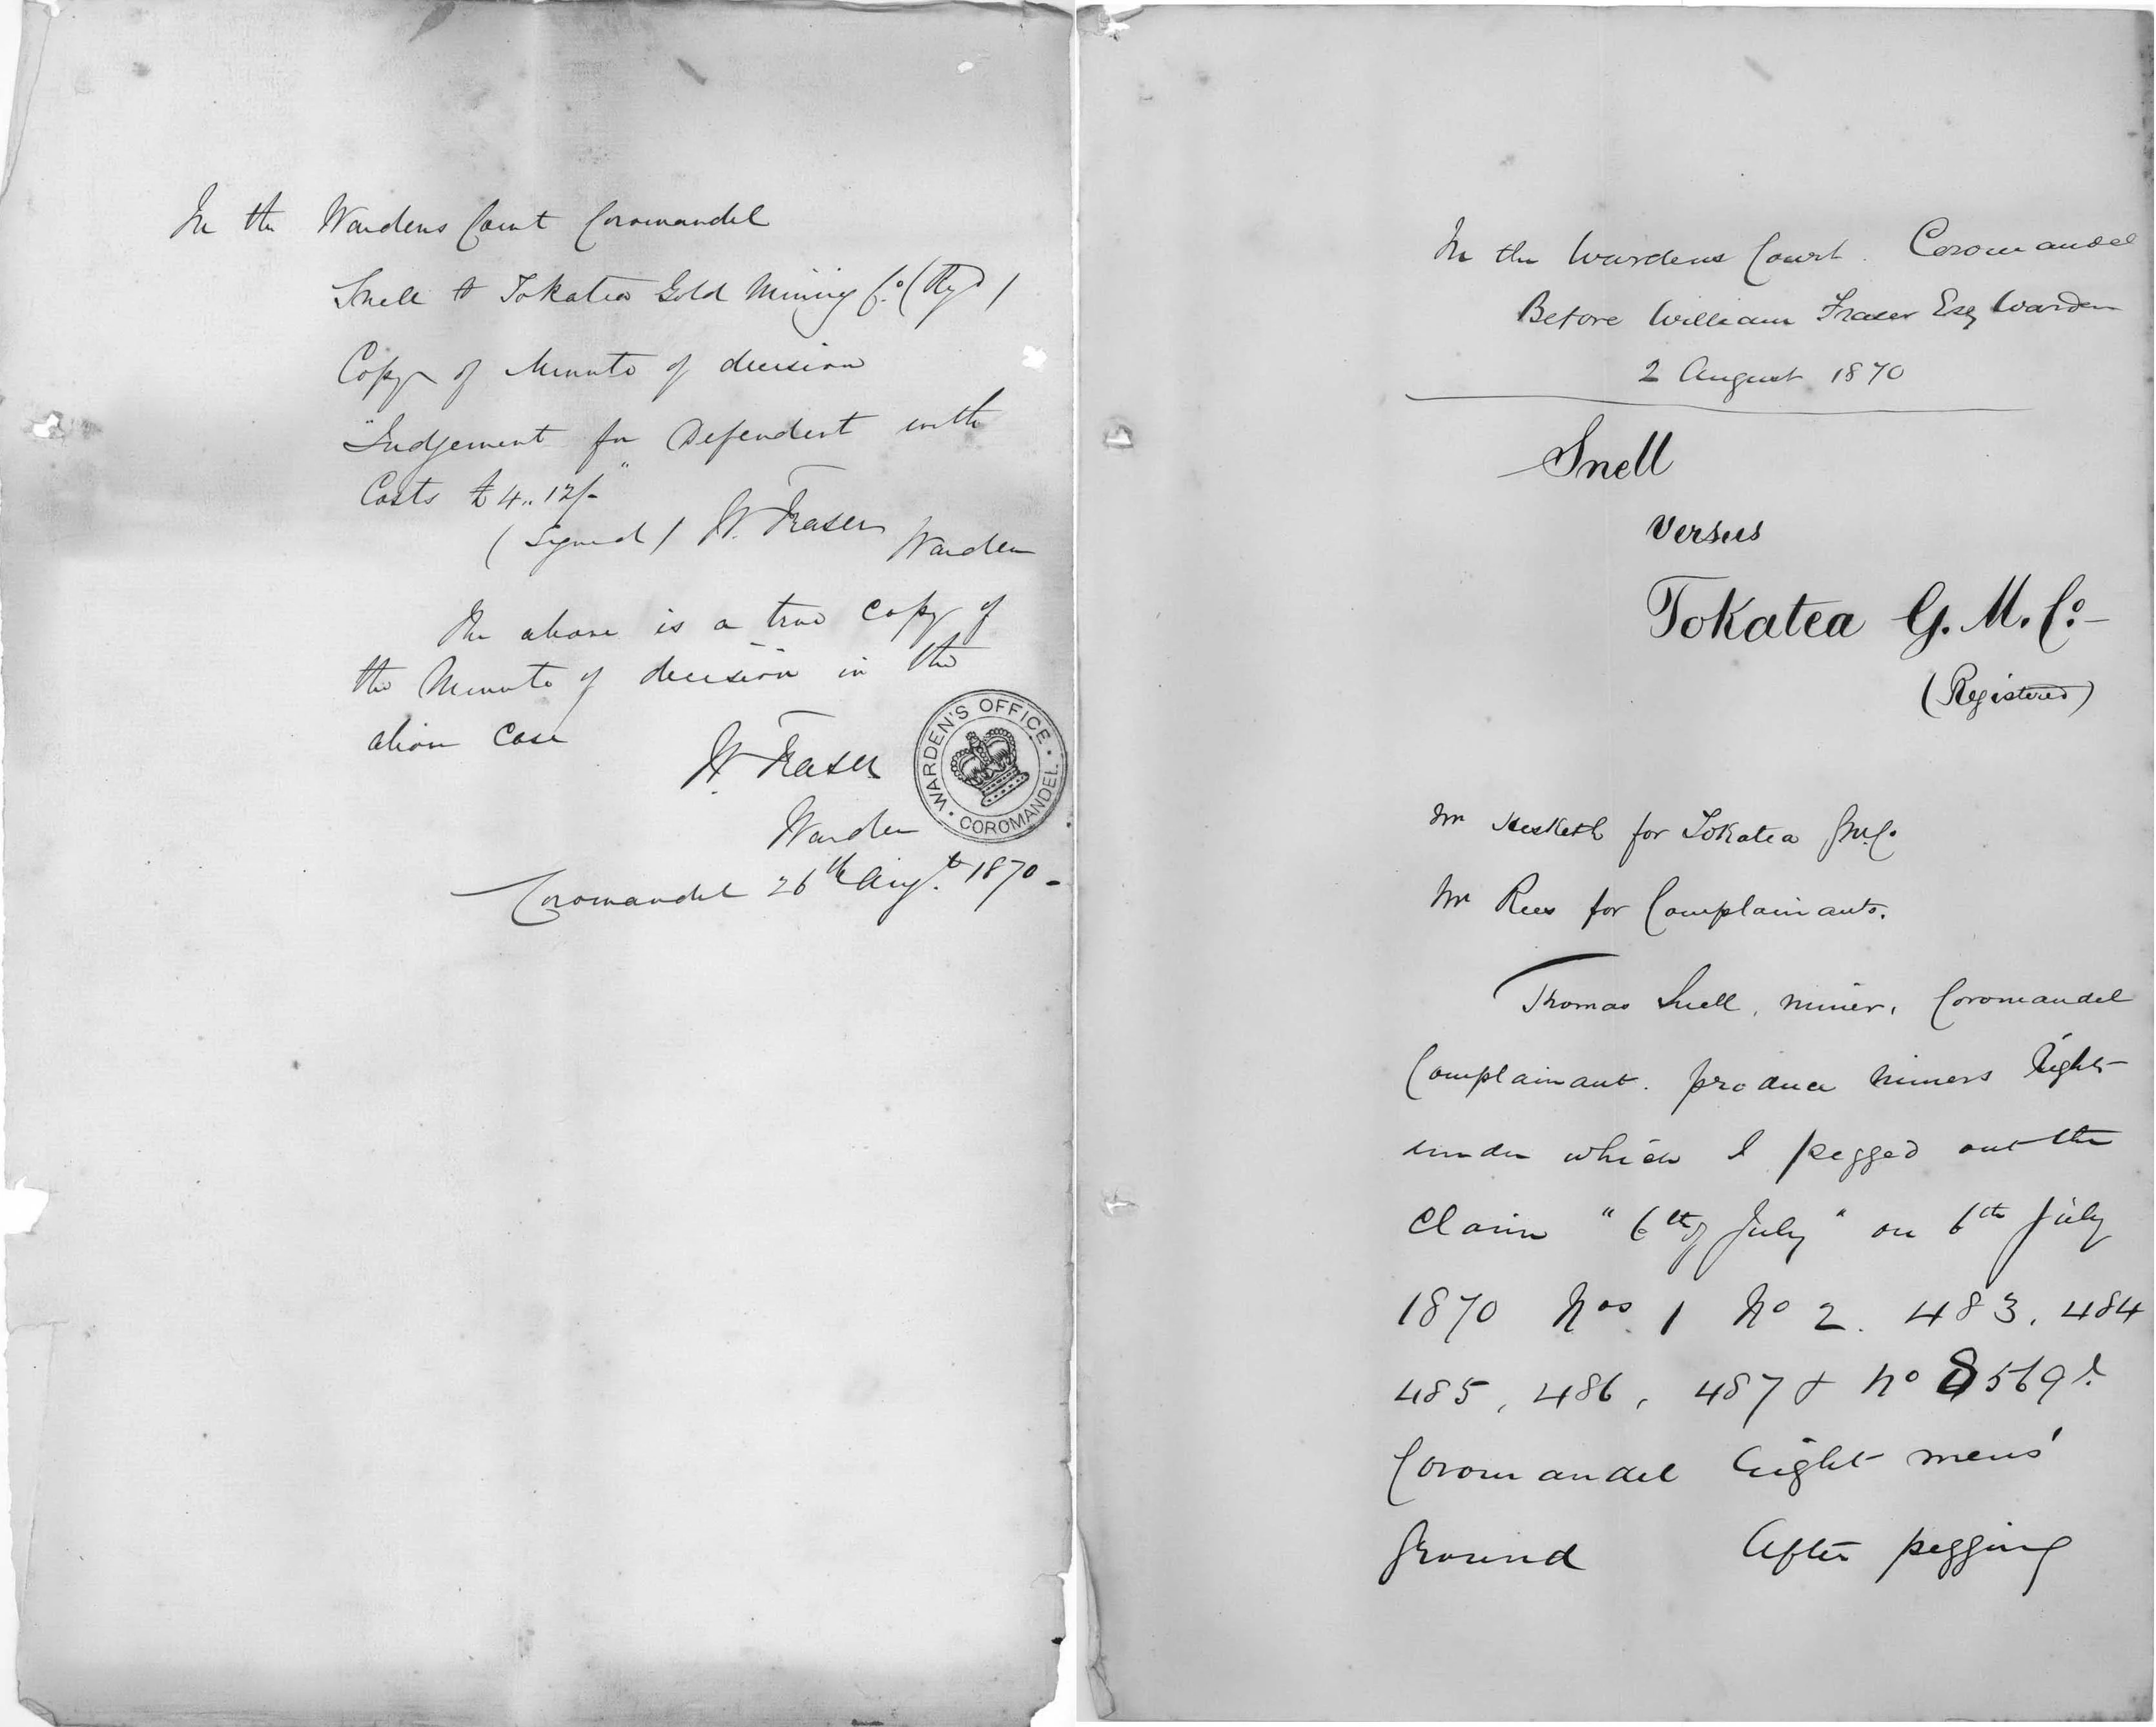 In the Wardens Court Coromandel
Snell v Tokatea Gold Mining Co. (Regd)
Copy of Minute of decision
"Judgement for Defendent with
Costs £4..12/-"
(Signed) W. Fraser Warden
The above is a true copy of
the Minute of decision in the
above case
W. Fraser
Warden
WARDEN'S OFFICE. COROMANDEL.
Coromandel 26th Augt. 1870-
In the Wardens Court. Coromandel
Before William Fraser Esq Warden
2 August 1870
Snell
versus
Tokatea G. M. Co.
(Registered)
Mr Hesketh for Tokatea G.M.C.
Mr Rees for Complainants.
Thomas Snell, miner, Coromandel
Complainant. produce miners Right
under which I pegged out the
Claim "6th of July" on 6th July
1870 Nos. 1 No 2. 483, 484
485, 486, 487 & No 8569
Coromandel Eight mens'
ground After pegging